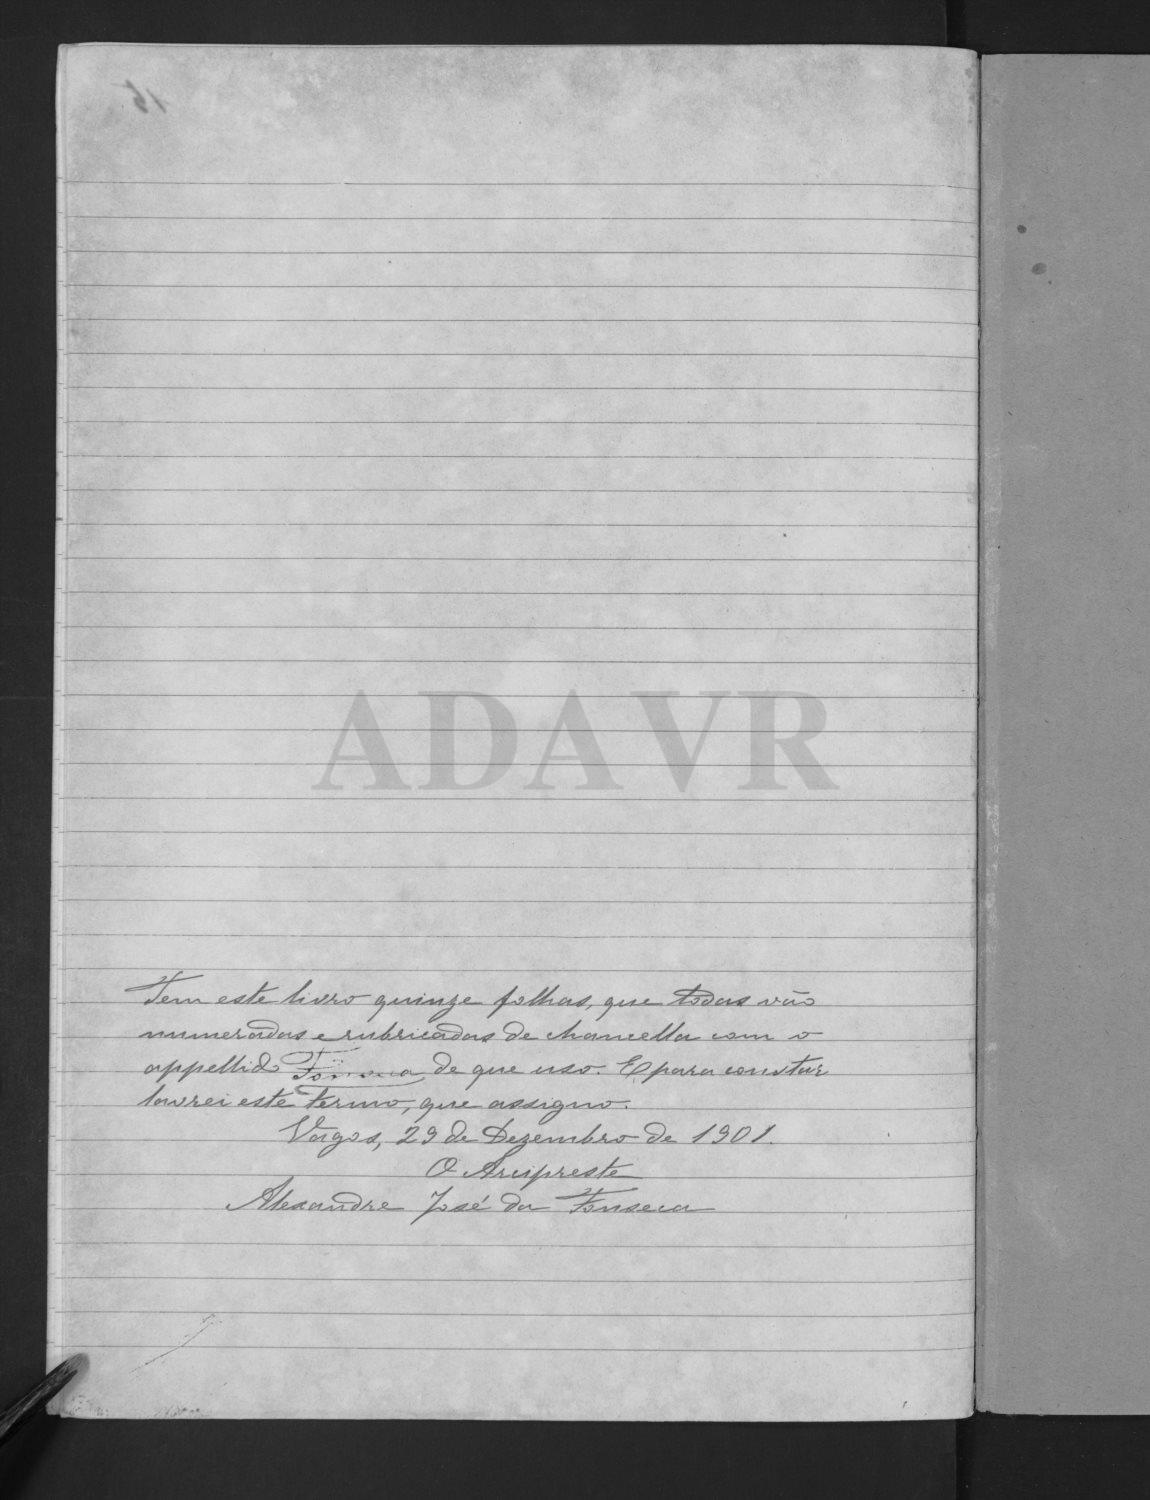 15
ADAVR
Tem este livro quinze folhas, que todas vão
numeradas e rubricadas de chancella com o
appellido Fonseca de que uso. E para constar
lavrei este termo, que assigno.
Vagos, 29 de Dezembro de 1901.
O Arcipreste
Alexandre José da Fonseca